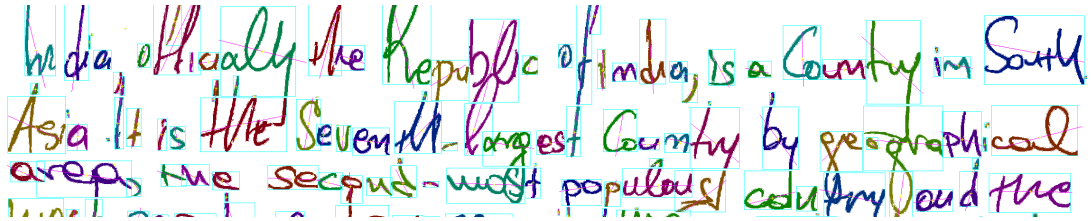 India, officially the Republic of India, is a Country in South
Asia. It is the Seventh-largest Country by geographical
area, the second-most populous country and the